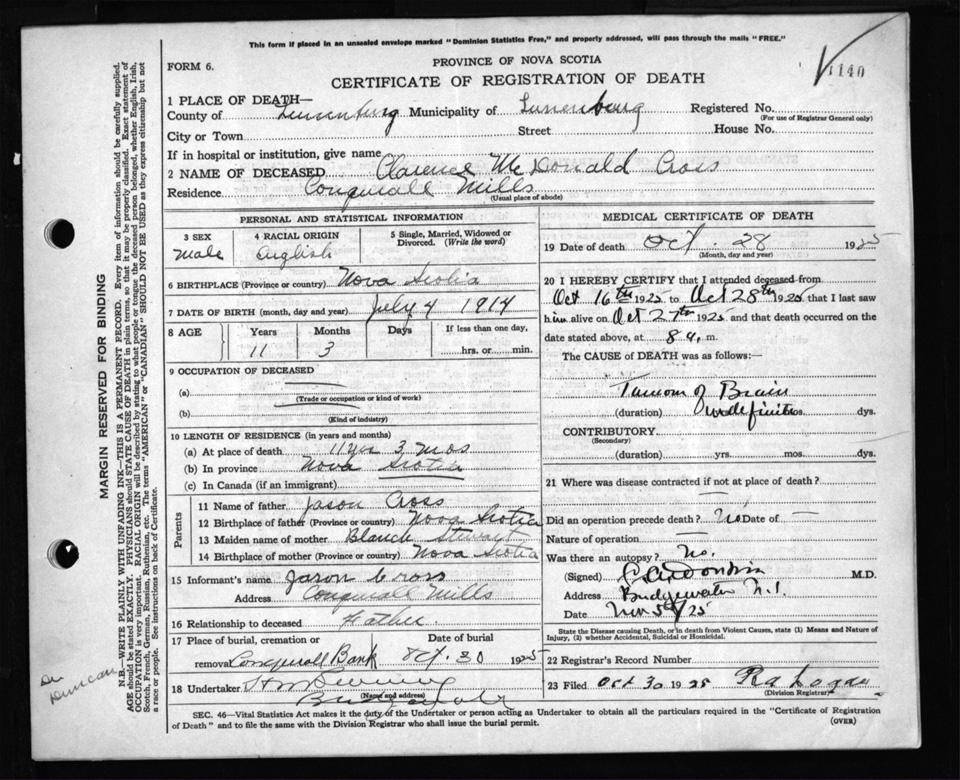 This form if placed in an unsealed envelope marked "Dominion Statistics Free," and properly addressed, will pass through the mails "FREE."
FORM 6.
PROVINCE OF NOVA SCOTIA
CERTIFICATE OF REGISTRATION OF DEATH
1140
1 PLACE OF DEATH—
County of Lunenburg Municipality of Lunenburg Registered No.
(For use of Registrar General only)
City or Town Street House No.
If in hospital or institution, give name
2 NAME OF DECEASED Clarence McDonald Cross
Residence Conquerall Mills
(Usual place of abode)
PERSONAL AND STATISTICAL INFORMATION
3 SEX 4 RACIAL ORIGIN 5 Single, Married, Widowed or Divorced. (Write the word)
Male English
6 BIRTHPLACE (Province or country) Nova Scotia
7 DATE OF BIRTH (month, day and year) July 4 1914
8 AGE Years Months Days If less than one day,
11 3 hrs. or min.
9 OCCUPATION OF DECEASED
(a)
(Trade or occupation or kind of work)
(b)
(Kind of industry)
10 LENGTH OF RESIDENCE (in years and months)
(a) At place of death 11 yrs 3 mos
(b) In province Nova Scotia
(c) In Canada (if an immigrant)
Parents
11 Name of father Jason Cross
12 Birthplace of father (Province or country) Nova Scotia
13 Maiden name of mother Blanch Stewart
14 Birthplace of mother (Province or country) Nova Scotia
15 Informant's name Jason Cross
Address Conquerall Mills
16 Relationship to deceased Father.
17 Place of burial, cremation or Date of burial
removal Conquerall Bank Oct. 30 1925
18 Undertaker
(Name and address)
MEDICAL CERTIFICATE OF DEATH
19 Date of death Oct. 28 1925
(Month, day and year)
20 I HEREBY CERTIFY that I attended deceased from
Oct 16th 1925 to Oct 28th 1925 that I last saw
him alive on Oct 27th 1925 and that death occurred on the
date stated above, at 8 a. m.
The CAUSE of DEATH was as follows:
Tumour of Brain
(duration) indefinite dys.
CONTRIBUTORY
(Secondary)
(duration) yrs. mos. dys.
21 Where was disease contracted if not at place of death? —
Did an operation precede death? No Date of —
Nature of operation —
Was there an autopsy? No.
(Signed) M.D.
Address Bridgewater N.S.
Date Nov 5th/25
State the Disease causing Death, or in death from Violent Causes, state (1) Means and Nature of
Injury, (2) whether Accidental, Suicidal or Homicidal.
22 Registrar's Record Number
23 Filed Oct 30 1925 R a Logan
(Division Registrar)
SEC. 46—Vital Statistics Act makes it the duty of the Undertaker or person acting as Undertaker to obtain all the particulars required in the "Certificate of Registration
of Death" and to file the same with the Division Registrar who shall issue the burial permit.
(OVER)
MARGIN RESERVED FOR BINDING
N.B.—WRITE PLAINLY WITH UNFADING INK—THIS IS A PERMANENT RECORD. Every item of information should be carefully supplied.
AGE should be stated EXACTLY. PHYSICIANS should STATE CAUSE OF DEATH in plain terms, so that it may be properly classified. Exact statement of
OCCUPATION is very important. RACIAL ORIGIN will be described by stating to what people or tongue the deceased person belonged, whether English, Irish,
Scotch, French, German, Russian, Ruthenian, etc. The terms "AMERICAN" or "CANADIAN" SHOULD NOT BE USED as they express citizenship but not
a race or people. See instructions on back of Certificate.
Duncan